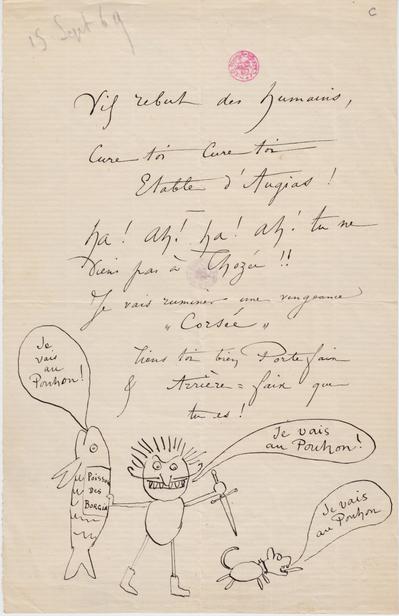 15 Sept 69
C
Vil rebut des humains,
Cure toi Cure toi
Etable d'Augias !
ha ! Ah ! ha ! ah ! tu ne
viens pas à Thozée !!
Je vais ruminer une vengeance
" Corsée "
tiens toi bien Portefaix
& Arrière = faix que
tu es !
Je
vais
au
Pouhon !
Poisson
des
Borgia
Je vais
au Pouhon !
Je vais
au Pouhon